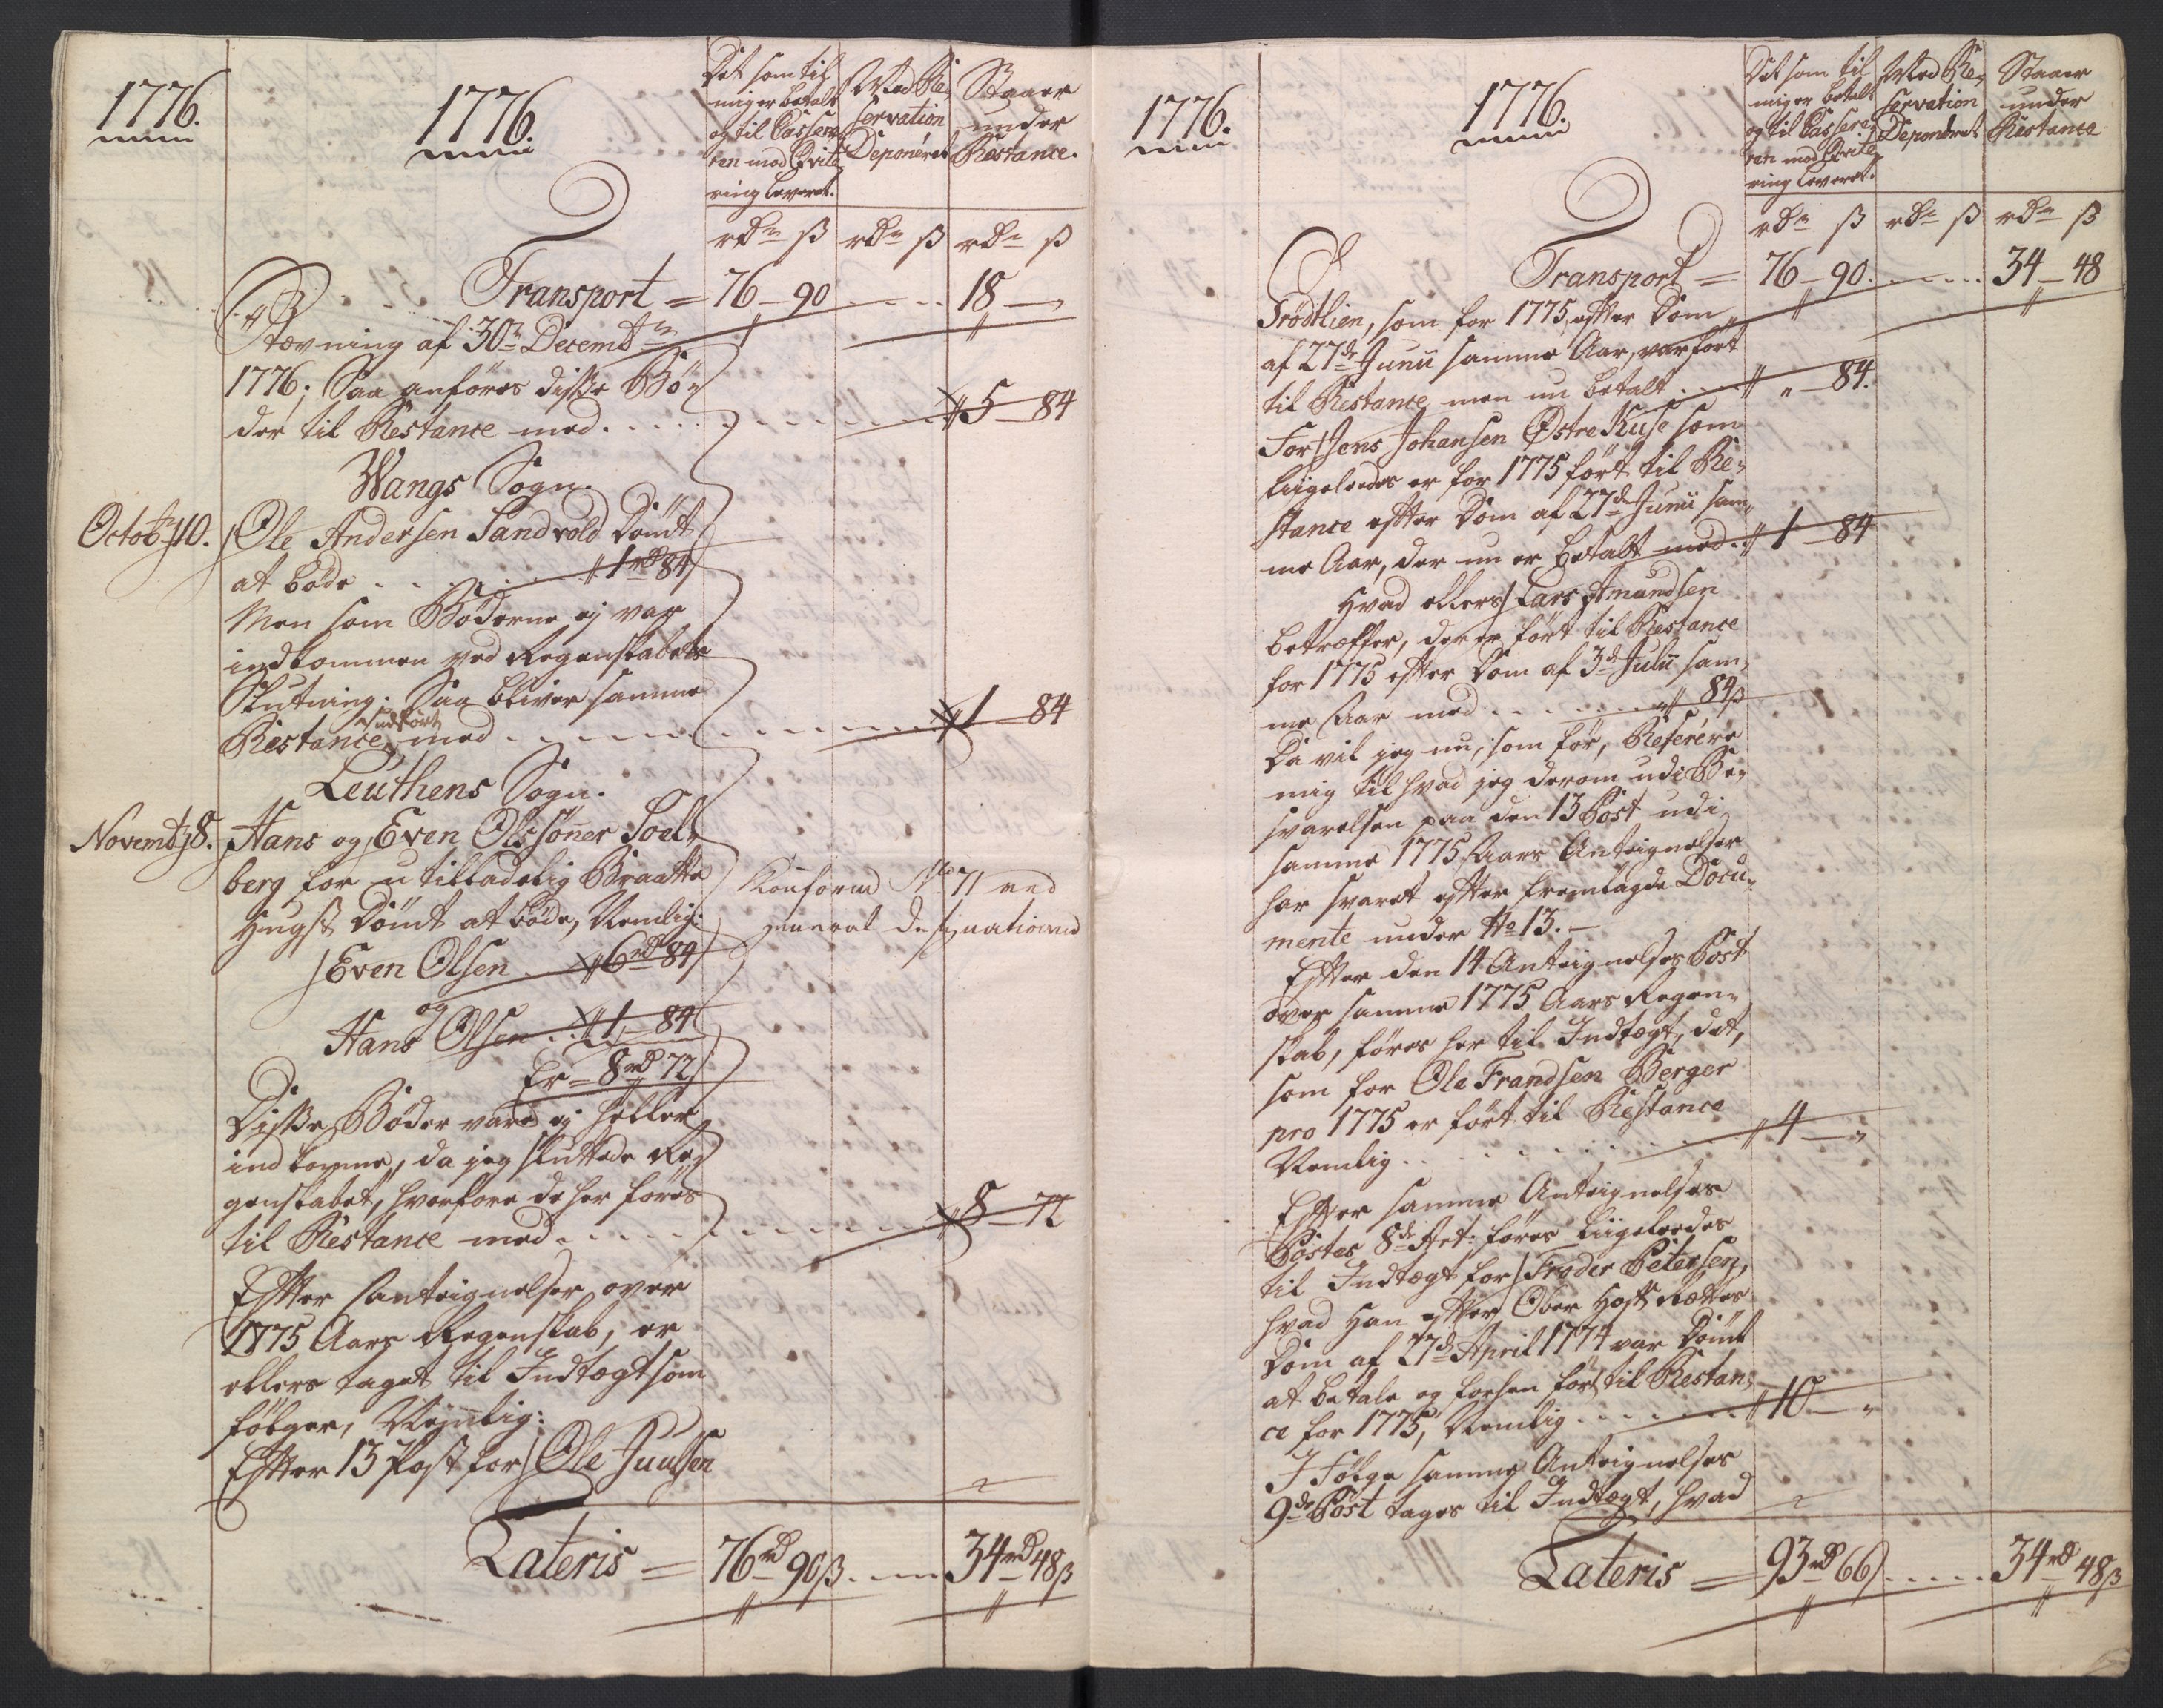 1776.
1776.
Det som til
mig er betalt
og til Cassere„
ren med Qvite„
ring leveret.
Med Re„
servation
Deponéret
Staaer
under
Restance.
rdr ß rdr ß rdr ß
Transport = 76 – 90 . . . . . 18 – „
Stævning af 30te Decembr
1776; Saa anföres disse Bö„
der til Restance med . . . . . . . . . 5 – 84
Wangs Sogn.
Octobr 10. Ole Andersen Sandvold Dömt
at böde . . . . . 1 rd 84
Men som Böderne ej var
indkommen ved Regenskabets
Slutning. Saa bliver samme
Restance udfört med . . . . . . . . 1 – 84
Leuthens Sogn.
Novembr 8. Hans og Even Olssöner Soel„
berg for utilladelig Braatte
Hugst Dömt at böde, Nemlig:
Konform No 71 ved
general designationen
Even Olsen . . 6 rd 84
og
Hans Olsen . . 1 – 84
Er = 8 rd 72
Disse Böder vare ej heller
indkomne, da jeg sluttede Re„
genskabet, hvorfore de her föres
til Restance med . . . . . . . . 8 – 72
Efter Antegnelser over
1775 Aars Regenskab, er
ellers taget til Indtægt som
fölger, Nemlig:
Efter 13 Post for Ole Juulsen
Lateris = 76 rd 90 ß . . . . 34 rd 48 ß
1776.
1776.
Det som til
mig er betalt
og til Cassere„
ren med Qvite„
ring leveret.
Med Re„
servation
Deponéret
Staaer
under
Restance
rdr ß rdr ß rdr ß
Transport = 76 – 90 . . . . . 34 – 48
Trödtlien, som for 1775 efter Dom
af 27de Junii samme Aar, var fört
til Restance, men nu betalt . . . „ – 84.
For Jens Johansen Østre Kuse som
liigeledes er for 1775 fört til Re„
stance efter Dom af 27de Junii sam„
me Aar, der nu er betalt med . . 1 – 84
Hvad ellers Lars Amundsen
betræffer, der er fört til Restance
for 1775 efter Dom af 3de Julii sam„
me Aar med . . . . . . 84 ß
Da vil jeg nu, som för, Referére
mig til hvad jeg derom udi Be„
svarelsen paa den 13 Post udi
samme 1775 Aars Antegnelser
har svaret efter fremlagde Docu„
mente under No 13. –
Efter den 14 Antegnelses Post
over samme 1775 Aars Regen„
skab, föres her til Indtægt, det,
som for Ole Frandsen Berger
pro 1775 er fört til Restance
Nemlig . . . . . . . . . 4 – „
Efter samme Antegnelses
Postes 8de Art: föres liigeledes
til Indtægt for Froder Petersen,
hvad han efter Ober Hof Rettes
Dom af 27de April 1774 var Dömt
at betale og forhen fört til Restan„
ce for 1775, Nemlig . . . . . . 10 – „
I Fölge samme Antegnelses
9de Post tages til Indtægt, hvad
Lateris = 93 rd 66 . . . . . 34 rd 48 ß